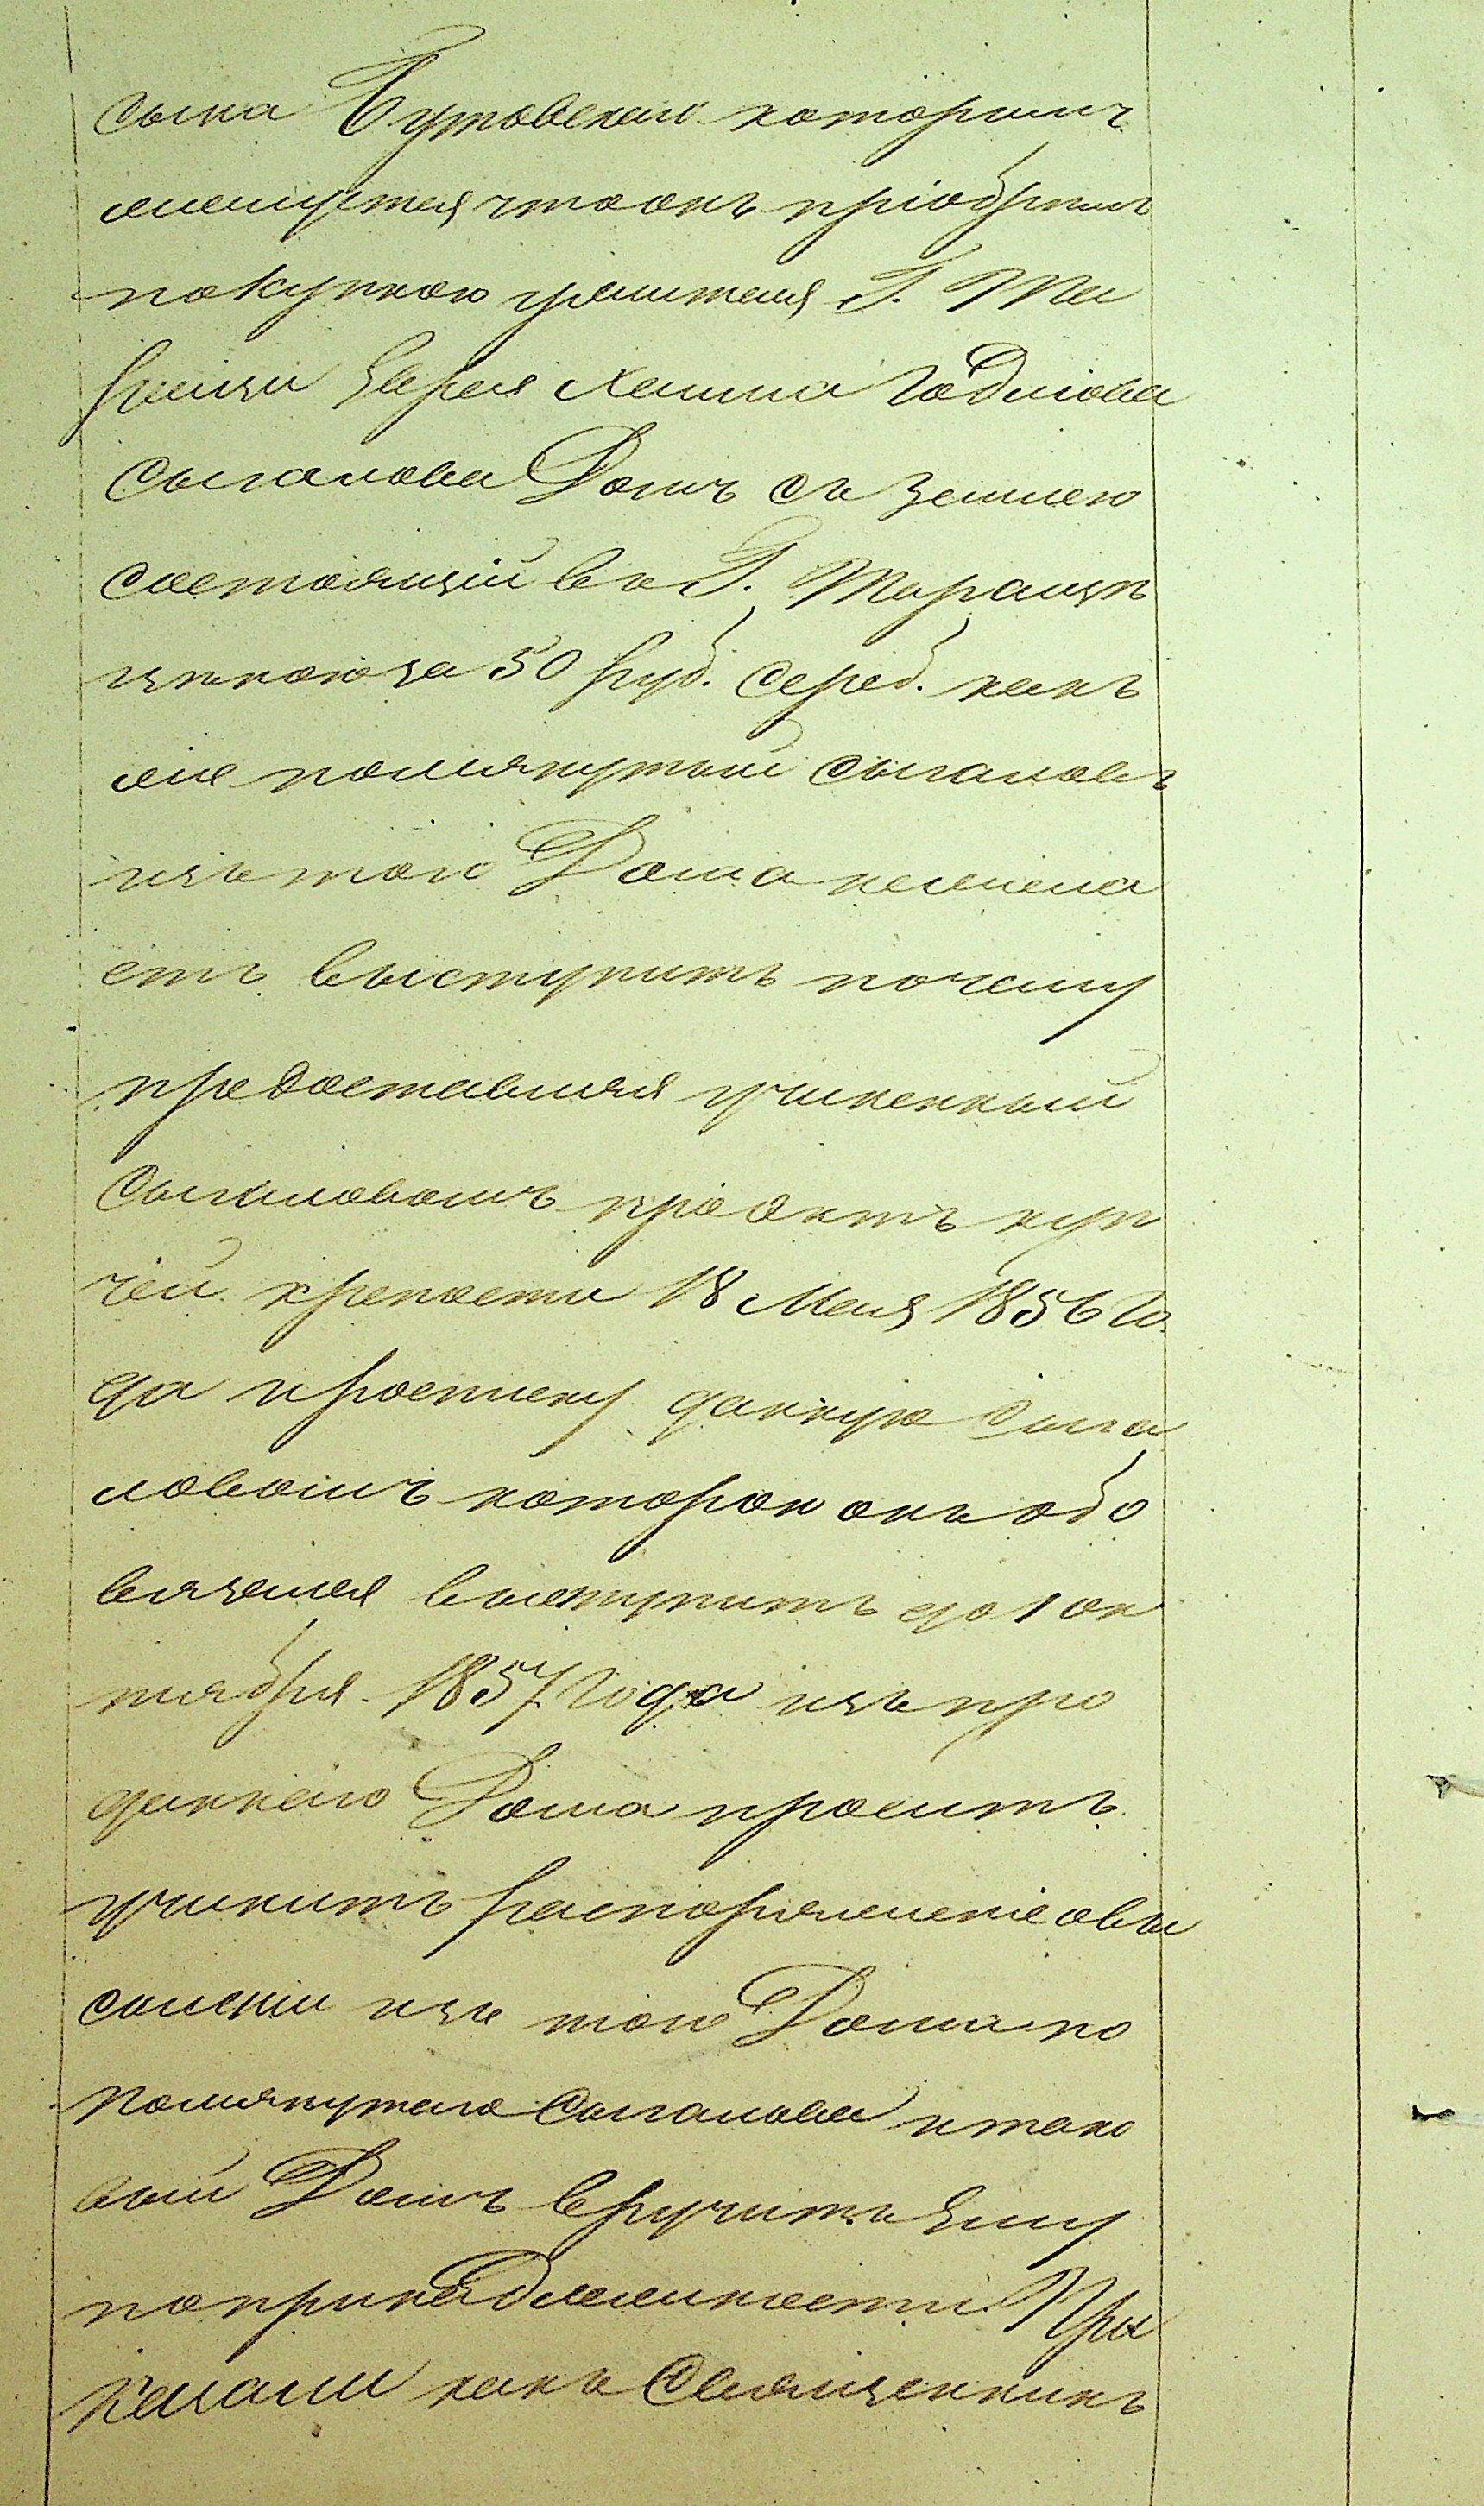 сына Бутовскаго которымъ
жалуется что онъ пріобрѣлъ
покупкою у жителя Г. Та
ращи Еврея Хаима Годлiова
Сыгалова Домъ съ землею
состоящій въ Г. Таращѣ
цѣною за 50 руб. сереб. какъ
же помянутый Сыгаловъ
изъ того Дома не жела
етъ выступить почему
предоставляя учиненный
Сыгаловымъ проэктъ куп
чей крепости 18 Мая 1856 го
да и росписку данную Сыга
ловымъ которою онъ обо
вязался выступить до 1 ок
тября 1857 года изъ про
даннаго Дома проситъ
учинить распоряженіе о вы
сылкѣ изъ того Дома по
помянутаго Сыгалова и тако
вый Домъ вручить Ему
по принадлежности При
казали какъ Священникъ